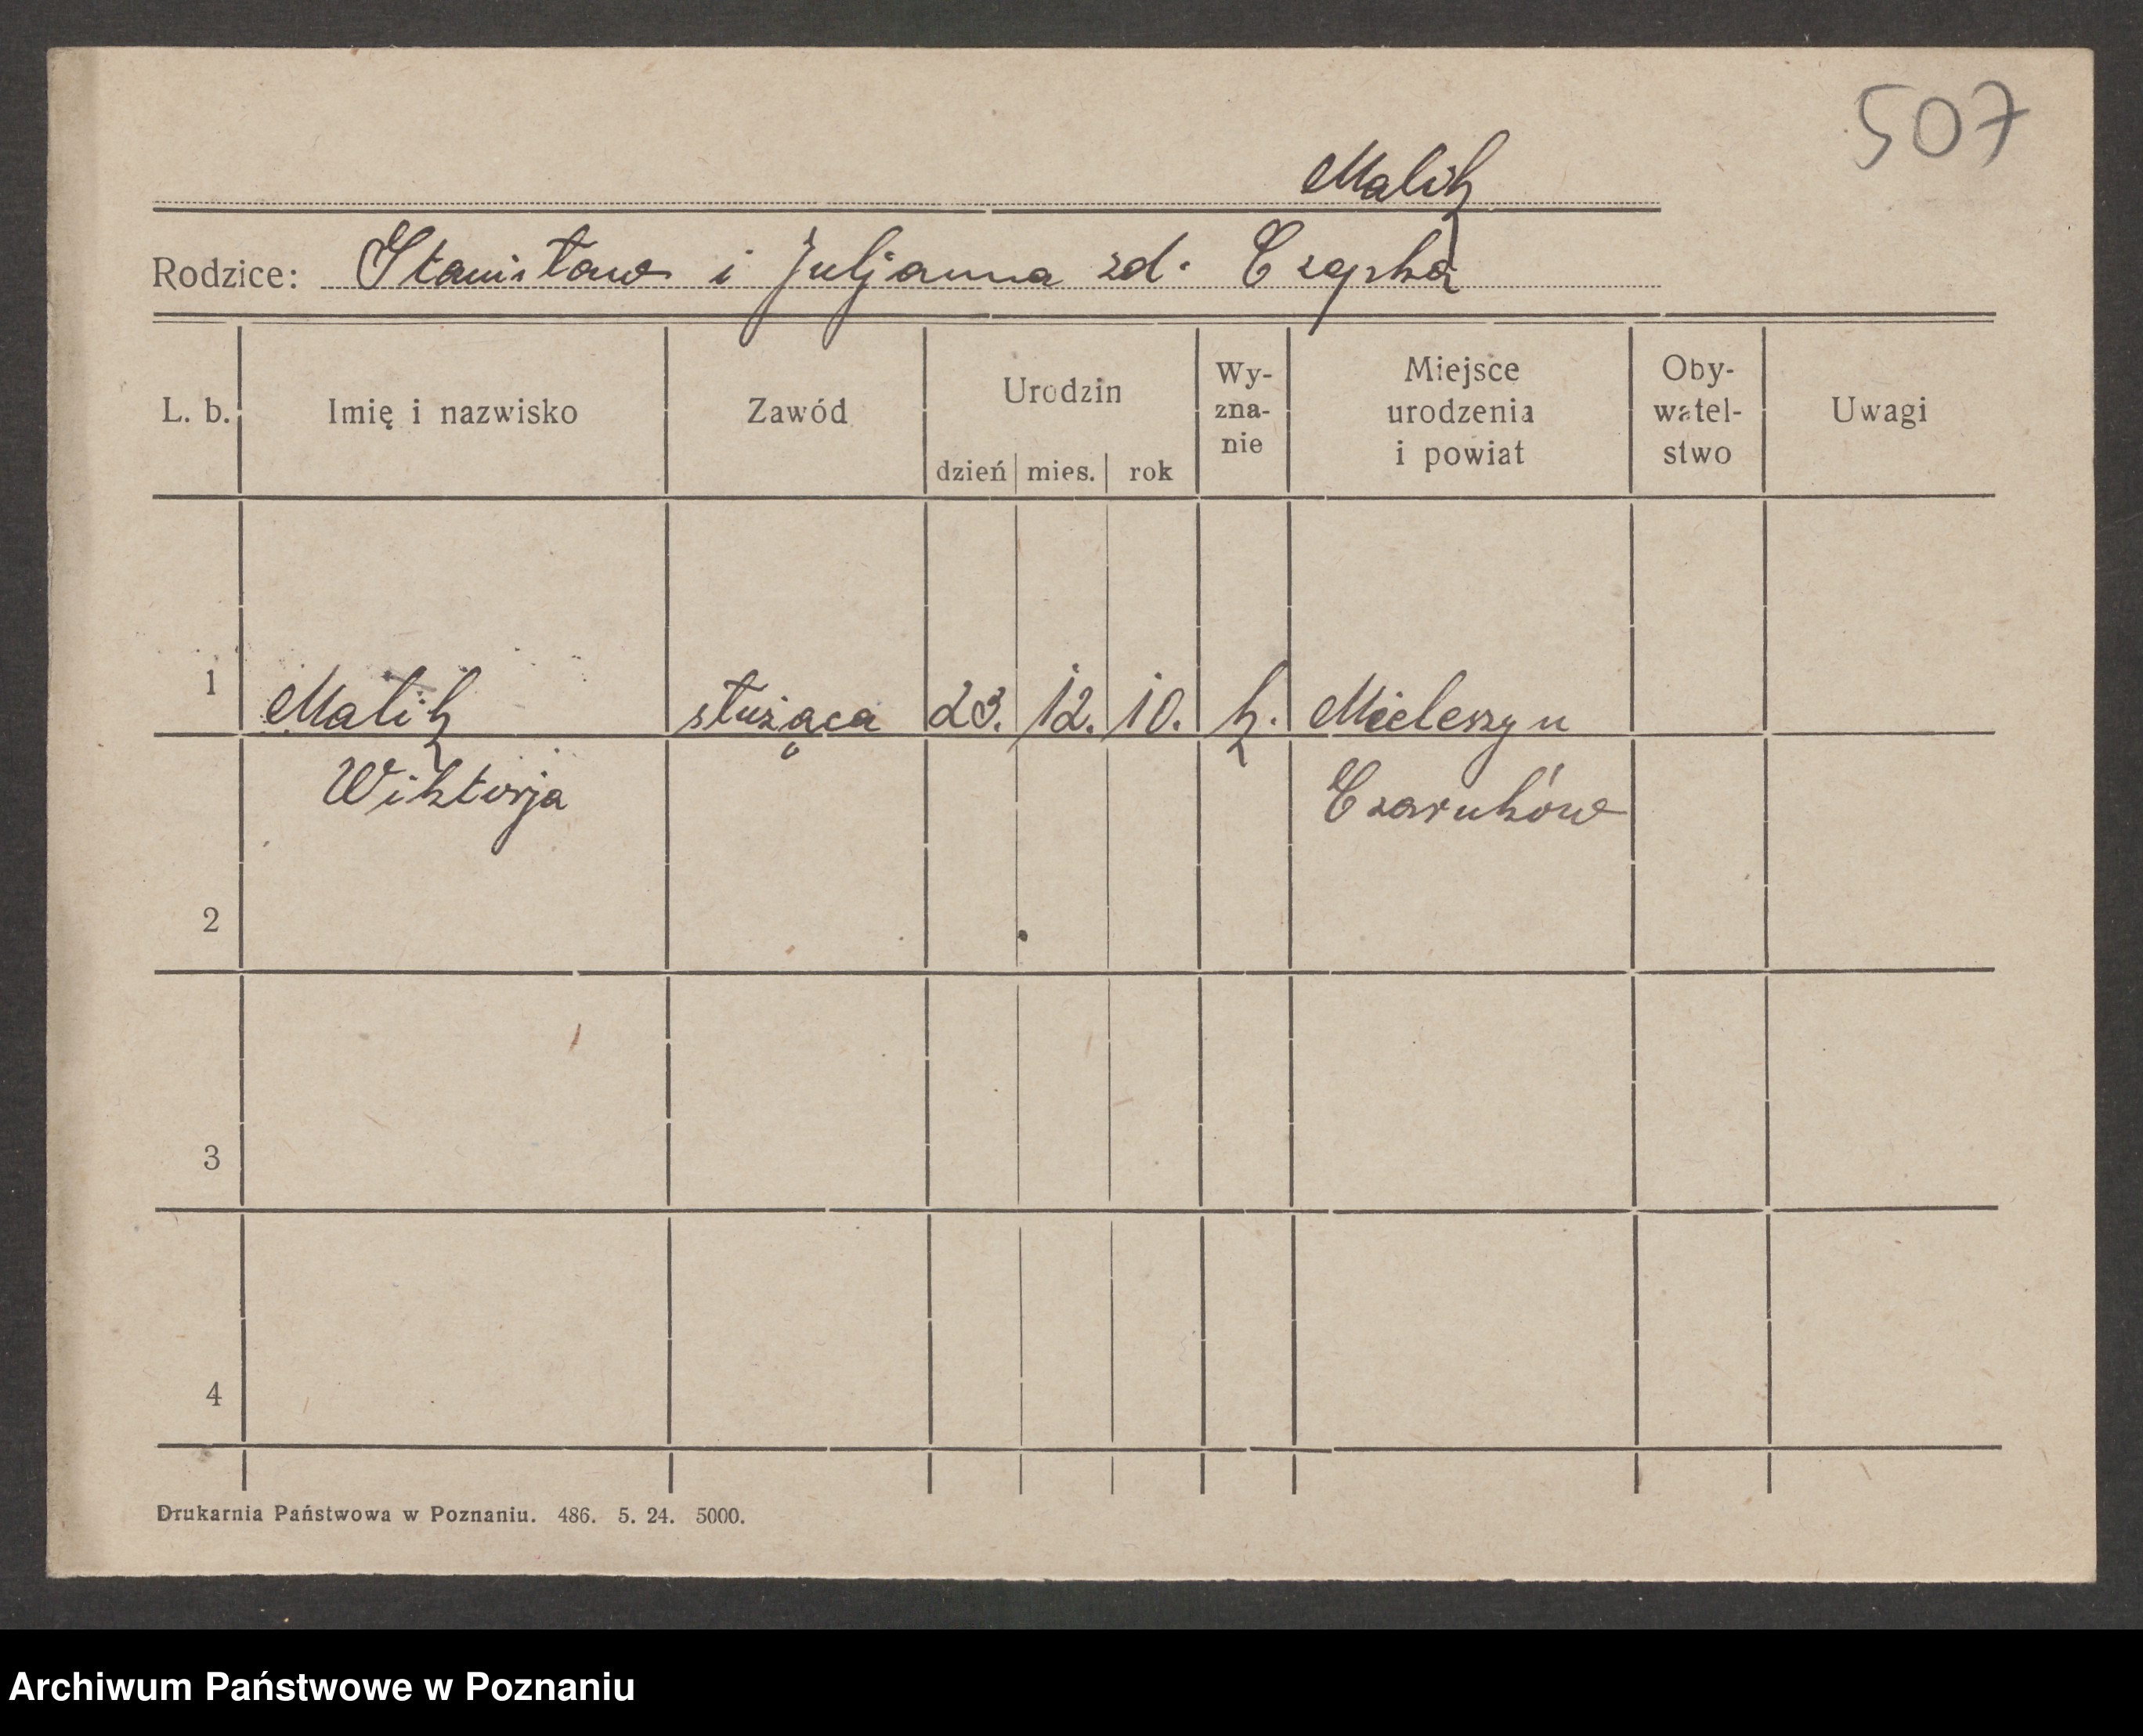 507
Malik
Rodzice: Stanisław i Juljanna zd. Czapka
L. b. Imię i nazwisko Zawód Urodzin dzień mies. rok Wy-zna-nie Miejsce urodzenia i powiat Oby-watel-stwo Uwagi
1 Malik służąca 23. 12. 10. k. Mieleszyn
Wiktorja Czarnków
2
3
4
Drukarnia Państwowa w Poznaniu. 486. 5. 24. 5000.
Archiwum Państwowe w Poznaniu